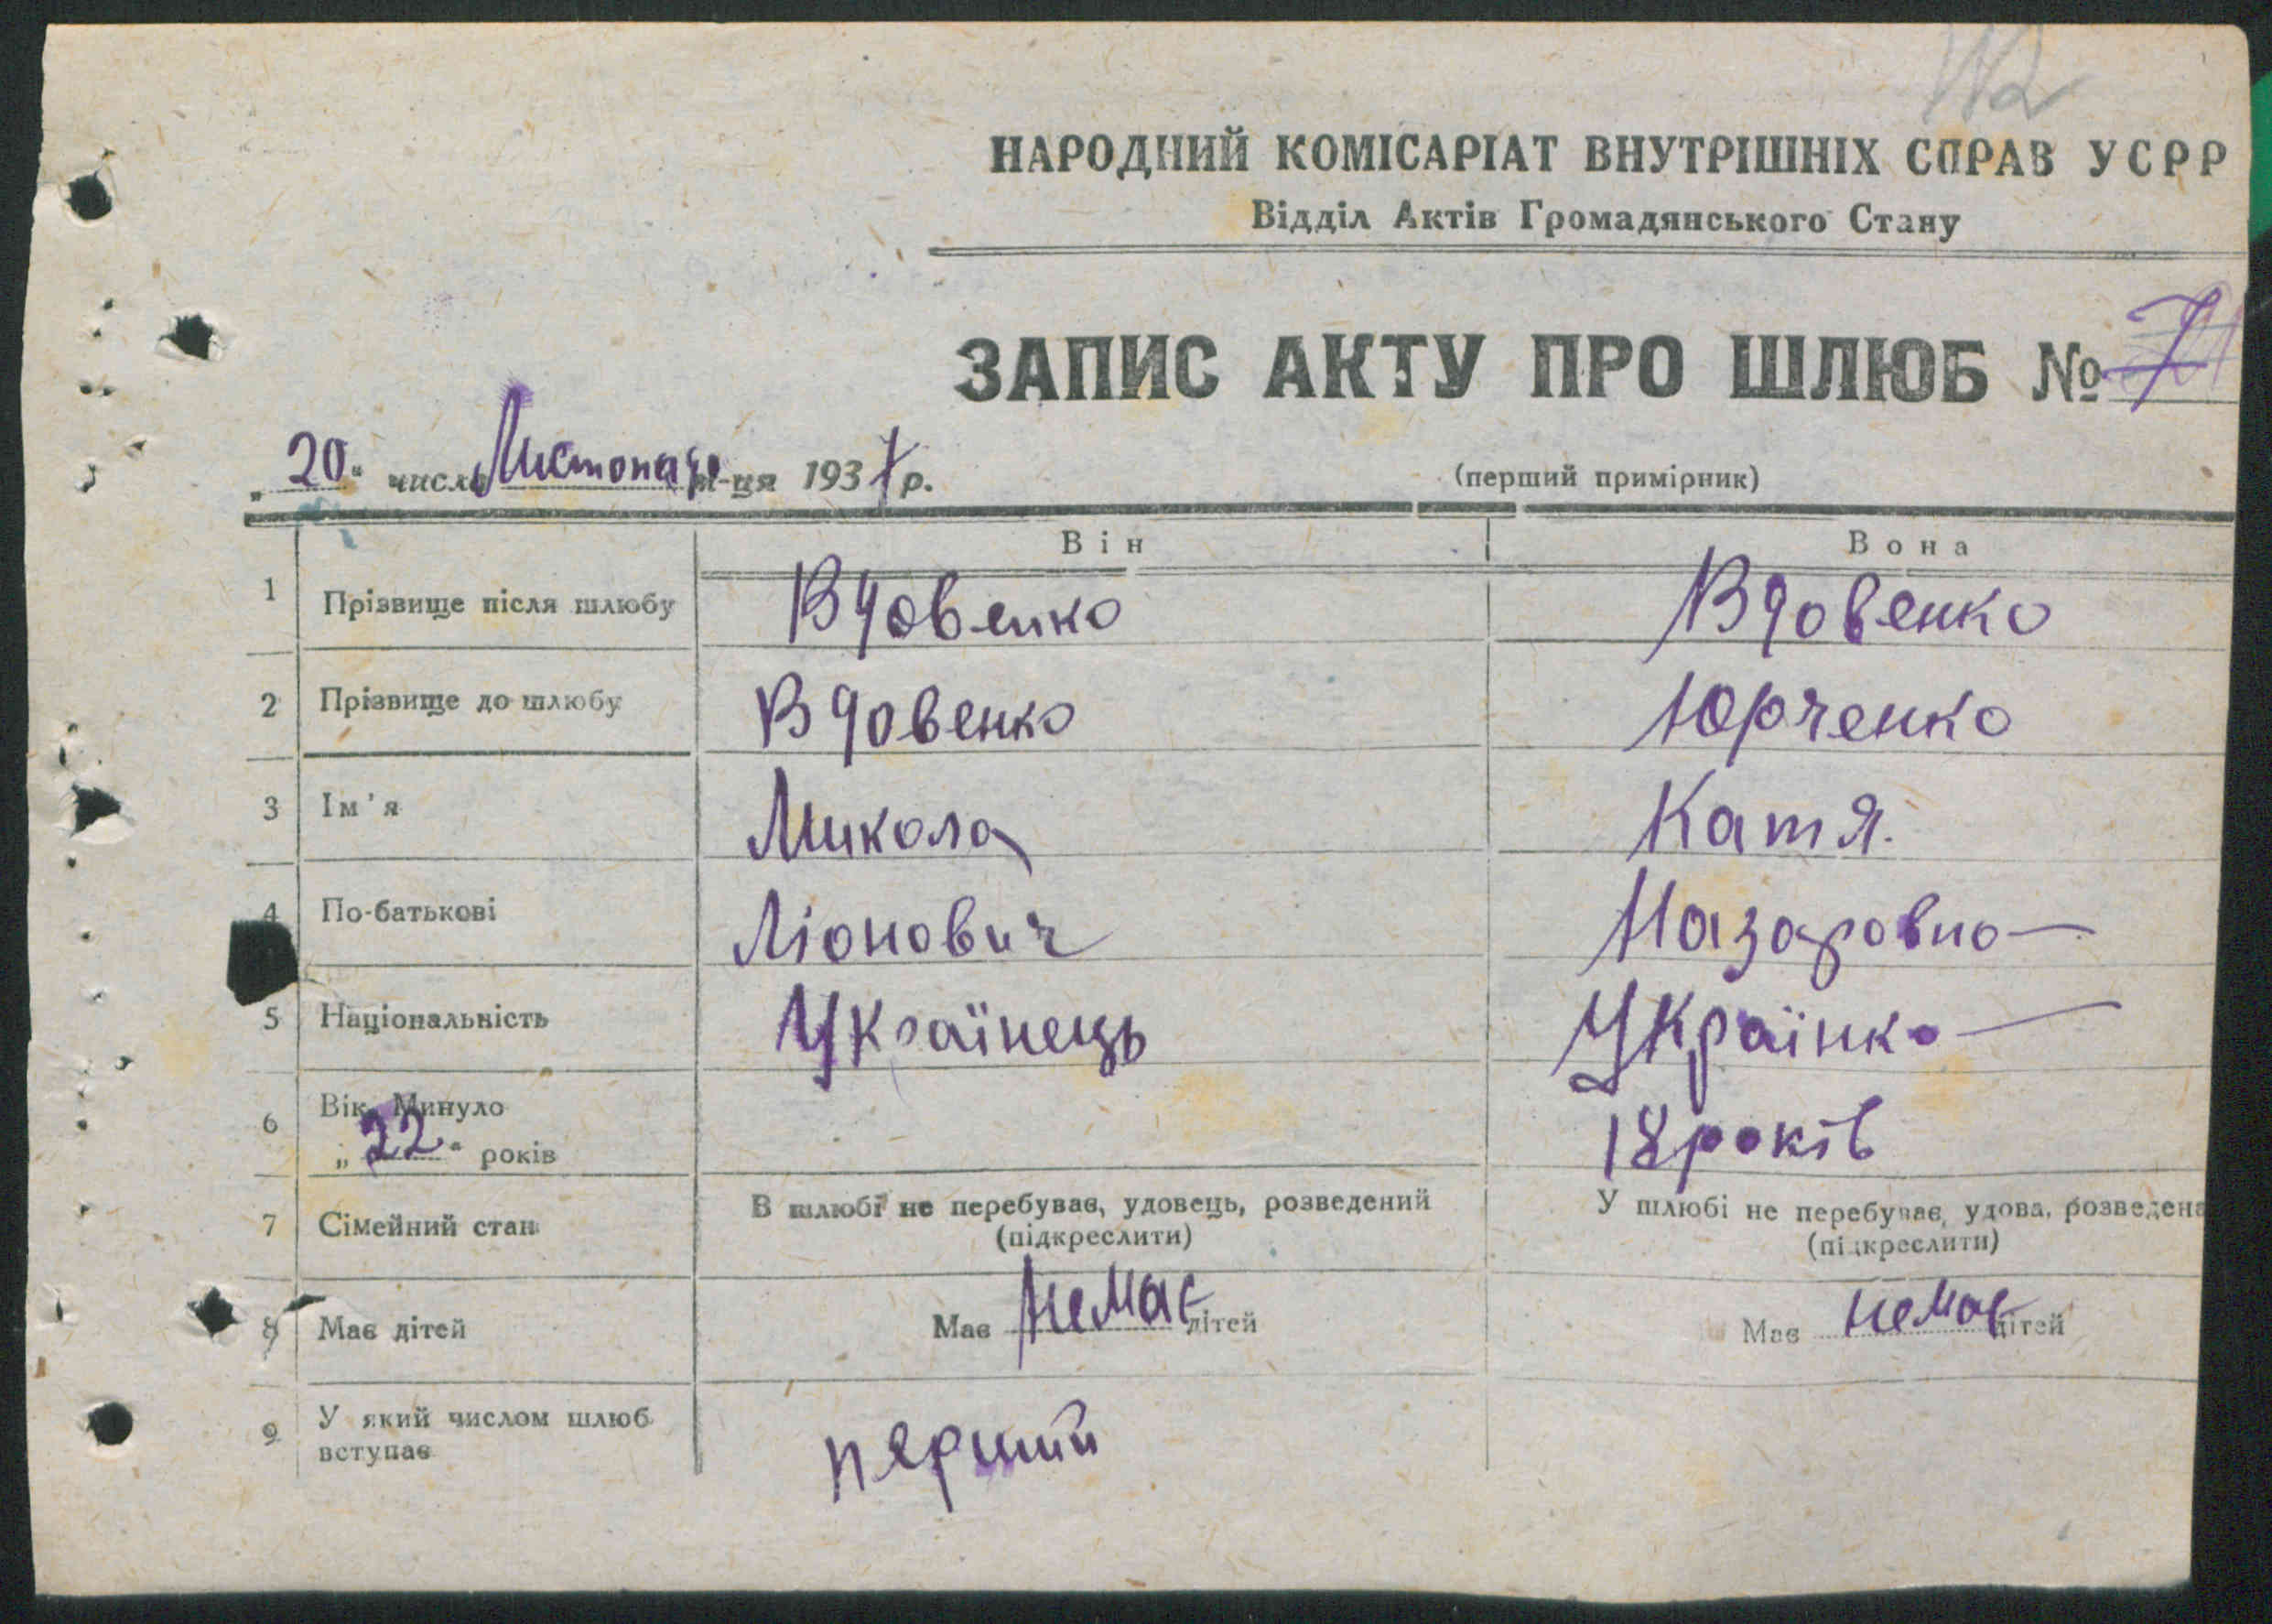 НАРОДНИЙ КОМІСАРІАТ ВНУТРІШНІХ СПРАВ УСРР
Відділ Актів Громадянського Стану
ЗАПИС АКТУ ПРО ШЛЮБ № 7
„20" числа Листопада м-ця 1937 р.
(перший примірник)
Він Вона
1 Прізвище після шлюбу Вдовенко Вдовенко
2 Прізвище до шлюбу Вдовенко Юрченко
3 Ім'я Микола Катя.
4 По-батькові Ліонович Назаровна
5 Національність Українець Українка
6 Вік. Минуло
„22" років 18 років
7 Сімейний стан В шлюбі не перебував, удовець, розведений У шлюбі не перебував, удова, розведена
(підкреслити) (підкреслити)
8 Має дітей Має немає дітей Має немає дітей
9 У який числом шлюб
вступає перший